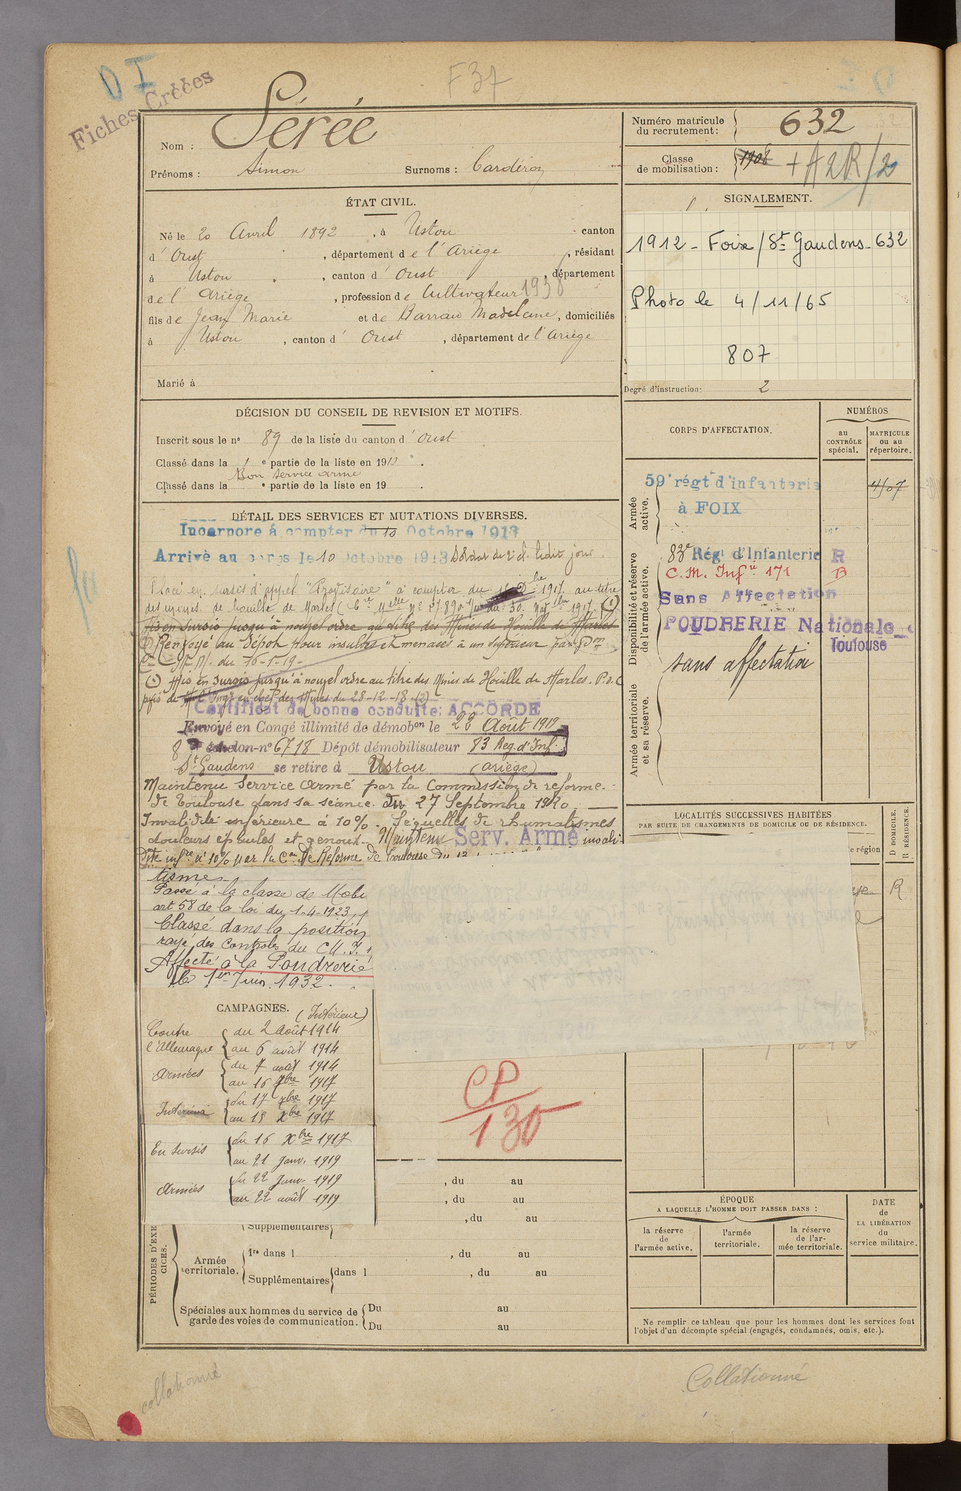 D I
Fiches Créées
F37
Nom : Sérée
Prénoms : Simon Surnoms : Cardéroy
Numéro matricule du recrutement : 632
Classe de mobilisation : 1908 + A2R/2
ÉTAT CIVIL.
Né le 20 Avril 1892, à Ustou canton
d'Oust, département de l'Ariège, résidant
à Ustou, canton d'Oust, département
de l'Ariège, profession de Cultivateur 1938
fils de Jean Marie et de Barrau Madelaine, domiciliés
à Ustou, canton d'Oust, département de l'Ariège
Marié à
SIGNALEMENT.
1912 - Foix / St Gaudens - 632
Photo le 4/11/65
807
Degré d'instruction : 2
DÉCISION DU CONSEIL DE REVISION ET MOTIFS.
Inscrit sous le n° 89 de la liste du canton d'Oust
Classé dans la 1e partie de la liste en 1913.
Bon service armé
Classé dans la e partie de la liste en 19 .
DÉTAIL DES SERVICES ET MUTATIONS DIVERSES.
Incorporé à compter du 10 Octobre 1913
Arrivé au corps le 10 Octobre 1913 Soldat de 2e cl. ledit jour.
Placé en sursis d'appel à compter du 1917 au titre
des mines de houille de Marles
Mis en sursis jusqu'à nouvel ordre au titre des Mines de Houille de Marles
Renvoyé au Dépôt pour insultes et menaces à un supérieur par
du 10-1-19-
Mis en sursis jusqu'à nouvel ordre au titre des Mines de Houille de Marles.
des Mines du 28-12-18
Certificat de bonne conduite : ACCORDÉ
Envoyé en Congé illimité de démobon le 22 Août 1919
8e échelon n° 6718 Dépôt démobilisateur 83 Reg. d'Inf.
St Gaudens se retire à Ustou (Ariège)
Maintenu Service Armé par la Commission de réforme
de Toulouse dans sa séance du 27 Septembre 1920
Invalidité inférieure à 10% - Séquelles de rhumatismes
douleurs épaules et genoux. Maintenu Serv. Armé invali-
dité infre à 10% par la Con de Réforme de Toulouse du 12
tismes
Passé à la classe de Mobi
art 58 de la loi du 1-4-1923
Classé dans la position
rayé des Contrôles du C.M.I.
Affecté à la Poudrerie
le 1er Juin 1932.
CORPS D'AFFECTATION.
NUMÉROS
au CONTRÔLE spécial.
MATRICULE ou au répertoire.
Armée active.
59e régt d'infanterie
à FOIX
4707
Disponibilité et réserve de l'armée active.
83e Régt d'Infanterie R
C. M. Infie 171 B
Sans Affectation
POUDRERIE Nationale
Toulouse
Armée territoriale et sa réserve.
sans affectation
LOCALITÉS SUCCESSIVES HABITÉES
PAR SUITE DE CHANGEMENTS DE DOMICILE OU DE RÉSIDENCE.
D DOMICILE.
R RÉSIDENCE.
de région
R
CAMPAGNES.
(Intérieur)
Contre l'Allemagne du 2 Août 1914
au 6 août 1914
Armées du 7 août 1914
au 16 7bre 1917
Intérieur du 17 7bre 1917
au 15 Xbre 1917
En Sursis du 16 Xbre 1917
au 21 Janv. 1919
Armées du 22 Janv. 1919
au 22 août 1919
CP
130
, du au
, du au
PÉRIODES D'EXERCICES.
Supplémentaires , du au
Armée territoriale.
1re dans l , du au
Supplémentaires dans l , du au
Spéciales aux hommes du service de garde des voies de communication. Du au
Du au
ÉPOQUE
A LAQUELLE L'HOMME DOIT PASSER DANS :
la réserve de l'armée active.
l'armée territoriale.
la réserve de l'armée territoriale.
DATE de LA LIBÉRATION du service militaire.
Ne remplir ce tableau que pour les hommes dont les services font
l'objet d'un décompte spécial (engagés, condamnés, omis, etc.).
collationné
Collationné